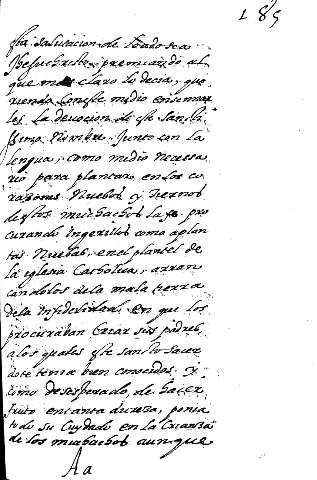 185
esta salutacion de Loado sea
Jhesuchristo, premiando al
que mas claro lo decia, que
riendo con este medio enseñar
les la devocion de este santi
ssimo Nombre, Junto con la
lengua, como medio necessa
rio para plantar en los co
razones Nuebos y tiernos
de estos muchachos la fe, pro
curando ingerirlos como a plan
tas Nuebas, en el plantel de
la iglesia Catholica, arran
candolos de la mala tierra
de la infidelidad, en que los
procuraban Criar sus padres,
a los quales este santo Sacer
dote tenia bien conocidos. Y
como desesperado, de hacer
fruto en tanta dureza, ponia
todo su Cuydado en la Crianza
de los muchachos aunque
Aa